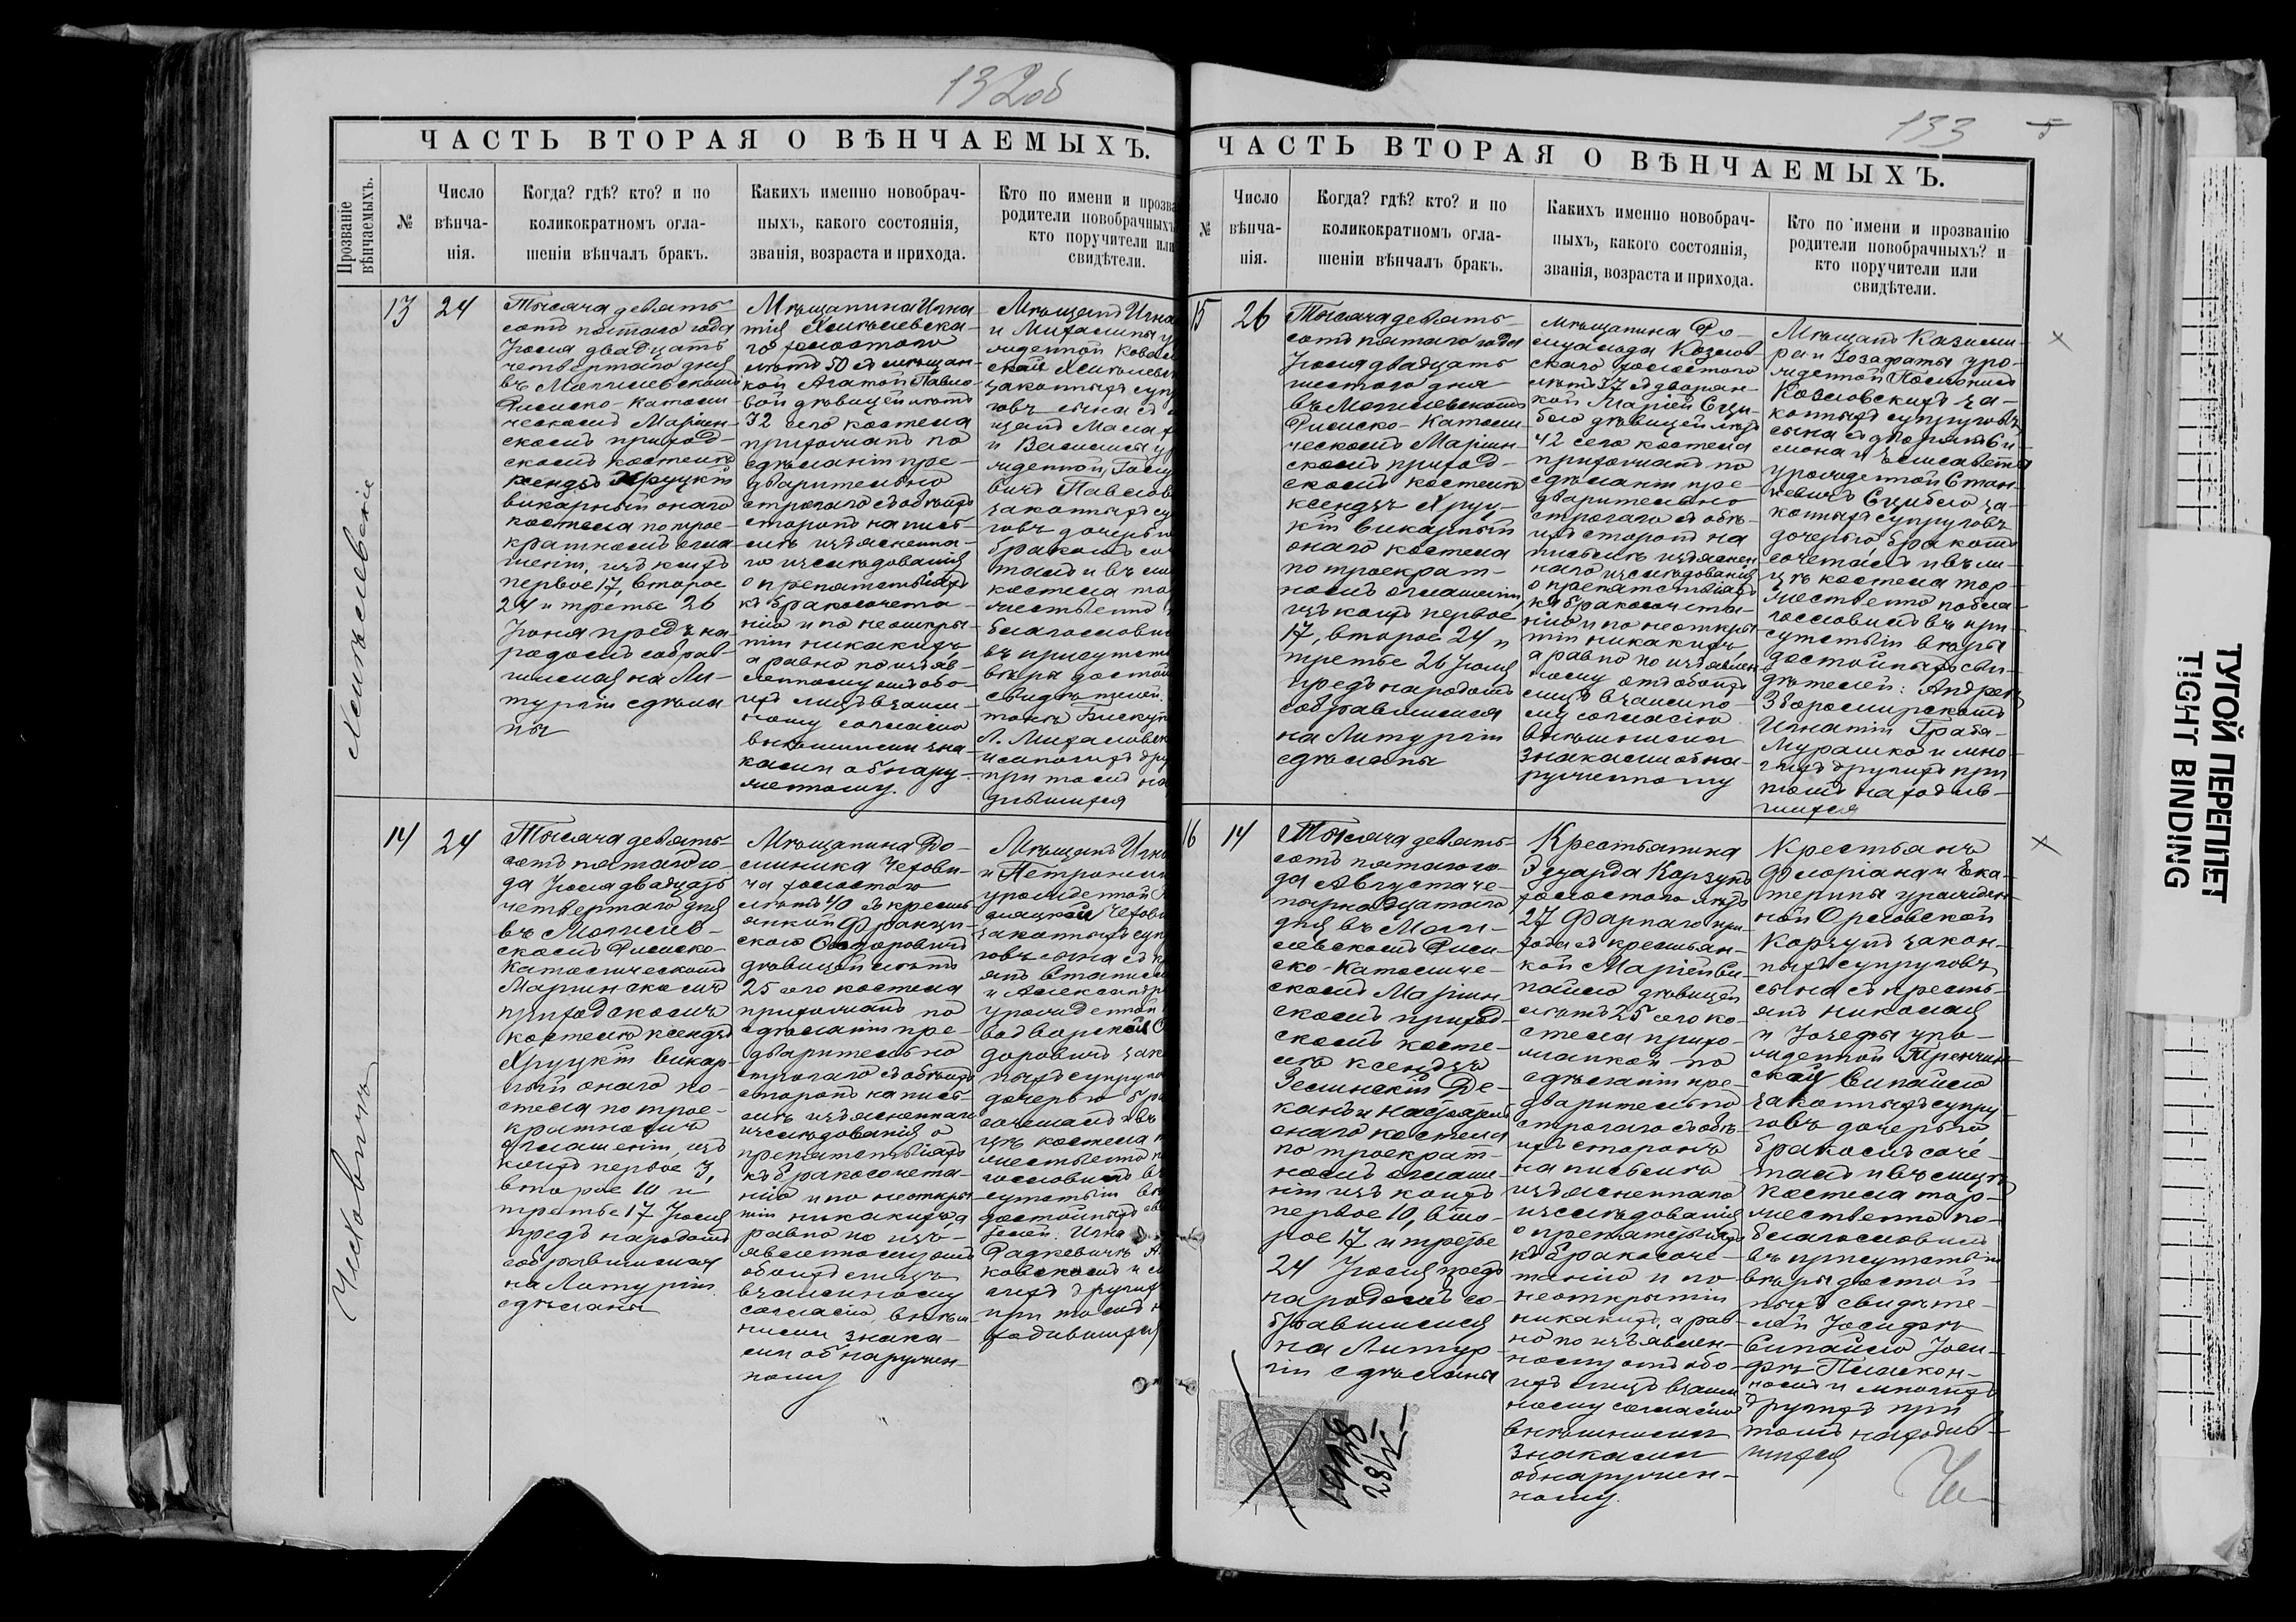 132об
ЧАСТЬ ВТОРАЯ О ВѢНЧАЕМЫХЪ.
Прозваніе вѣнчаемыхъ.
№
Число вѣнча-
нія.
Когда? гдѣ? кто? и по
коликократномъ огла-
шеніи вѣнчалъ бракъ.
Какихъ именно новобрач-
ныхъ, какого состоянія,
званія, возраста и прихода.
Кто по имени и прозва
родители новобрачныхъ
кто поручители или
свидѣтели.
13
24
Тысяча девять-
сотъ пятаго года
Іюля двадцать
четвертаго дня
въ Могилевскомъ
Римско-Католи-
ческомъ Маріин-
скомъ приход-
скомъ костелѣ
ксендзъ Хруцкій
викарный онаго
костела по трое-
кратномъ огла-
шеніи, изъ коихъ
первое 17, второе
24 и третье 26
Іюня предъ на-
родомъ собрав-
шимся на Ли-
тургіи сдѣла
ны
Мѣщанина Игна
тія
го холостого
лѣтъ 50 съ мѣщан-
кой Агатой Павло-
вой дѣвицей лѣтъ
32 сего костела
прихожанъ по
сдѣланіи пре-
дварительно
строгаго съ обѣихъ
сторонъ на пись-
мѣ изъясненна-
го изслѣдованія
о препятствіяхъ
къ бракосочета-
нію и по неоткры-
тіи никакихъ
а равно по изъяв-
ленному отъ обо-
ихъ лицъ взаим-
ному согласію
внѣшними зна-
ками обнару-
женному.
Мѣщанъ Игна
и Михалины у
жденной
законныхъ суп
говъ сына съ
щанъ
и
жденной
вичъ Павлов
законныхъ су
говъ дочерью
бракомъ со
талъ и въ ли
костела то
жественно
благословил
въ присутст
вѣры достой
свидѣтелей
Л. Михаловск
и многихъ дру
при томъ на
дившихся
14
24
Тысяча девять-
сотъ пятаго го-
да Іюля двадцать
четвертаго дня
въ Могилев-
скомъ Римско-
Католическомъ
Маріинскомъ
приходскомъ
костелѣ ксендзъ
Хруцкій викар-
ный онаго ко-
стела по трое-
кратномъ
оглашеніи, изъ
коихъ первое 3,
второе 10 и
третье 17 Іюля
предъ народомъ
собравшимся
на Литургіи
сдѣланы
Мѣщанина До-
миника Чехови-
ча холостого
лѣтъ 40 съ кресть
янкой Францы-
ской
дѣвицей лѣтъ
25 сего костела
прихожанъ по
сдѣланіи пре-
дварительно
строгаго съ обѣихъ
сторонъ на пись-
мѣ изъясненнаго
изслѣдованія о
препятствіяхъ
къ бракосочета-
нію и по неоткры
тіи никакихъ, а
равно по изъ-
явленному отъ
обоихъ лицъ
взаимному
согласію, внѣш
ними знака-
ми обнаружен-
ному
Мѣщанъ Игна
и Петронели
урожденной
Чехови
законныхъ суп
говъ сына съ к
янъ Станисл
и Александры
урожденной
доровичъ зак
ныхъ супруго
дочерью бра
сочеталъ и въ
цѣ костела т
жественно п
гословилъ въ
сутствіи вѣ
достойныхъ сви
телей: Игна
Радкевичъ А
ковскомъ и м
гихъ другихъ
при томъ н
ходившихся
133
5
ЧАСТЬ ВТОРАЯ О ВѢНЧАЕМЫХЪ.
№
Число
вѣнча-
нія.
Когда? гдѣ? кто? и по
коликократномъ огла-
шеніи вѣнчалъ бракъ.
Какихъ именно новобрач-
ныхъ, какого состоянія,
званія, возраста и прихода.
Кто по имени и прозванію
родители новобрачныхъ? и
кто поручители или
свидѣтели.
15
26
Тысяча девять-
сотъ пятаго года
Іюля двадцать
шестого дня
въ Могилевскомъ
Римско-Католи-
ческомъ Маріин-
скомъ приход-
скомъ костелѣ
ксендзъ Хруц-
кій викарный
онаго костела
по троекрат-
номъ оглашеніи,
изъ коихъ первое
17, второе 24 и
третье 26 Іюля
предъ народомъ
собравшимся
на Литургіи
сдѣланы
Мѣщанина Ро-
муальда Козлов-
скаго холостого
лѣтъ 37 съ дворян-
кой Маріей Сци-
бло дѣвицей лѣтъ
42 сего костела
прихожанъ по
сдѣланіи пре-
дварительно
строгаго съ обѣ-
ихъ сторонъ на
письмѣ изъяснен
наго изслѣдованія
о препятствіяхъ
къ бракосочета-
нію и по неоткры
тіи никакихъ,
а равно по изъявлен
ному отъ обоихъ
лицъ взаимно-
му согласію
внѣшними
знаками обна-
руженному
Мѣщанъ Казими-
ра и Іозафаты уро-
жденной
Козловскихъ за-
конныхъ супруговъ
сына съ дворянъ
и Елисаветы
урожденной Стан-
кевичъ Сцибло за-
конныхъ супруговъ
дочерью бракомъ
сочеталъ и въ ли-
цѣ костела тор-
жественно побла-
гословилъ въ при-
сутствіи вѣры
достойныхъ сви-
дѣтелей: Андрея
Игнатіи Граба-
Мурашко и мно-
гихъ другихъ при
томъ находив-
шихся
16
14
Тысяча девять-
сотъ пятаго го-
да Августа че-
тырнадцатаго
дня въ Моги-
левскомъ Рим-
ско-Католиче-
скомъ Маріин-
скомъ приход-
скомъ косте-
лѣ ксендзъ
Зелинскій Де-
канъ и настоятель
онаго костела
по троекрат-
номъ оглаше-
ніи изъ коихъ
первое 10, вто-
рое 17 и третье
24 Іюля предъ
народомъ со-
бравшимся
на Литур-
гіи сдѣланы
Крестьянина
Эдуарда Корзунъ
холостого лѣтъ
27 Фарнаго при-
хода съ крестьян-
кой Маріей Си-
пайло дѣвицей
лѣтъ 25 сего ко-
стела прихо-
жанкой по
сдѣланіи пре-
дварительно
строгаго съ обѣ-
ихъ сторонъ
на письмѣ
изъясненнаго
изслѣдованія
о препятствіяхъ
къ бракосоче-
танію и по
неоткрытіи
никакихъ, а рав-
но по изъявлен-
ному отъ обо-
ихъ лицъ взаим
ному согласію
внѣшними
знаками
обнаружен-
ному.
Крестьянъ
Флоріана и Ека-
терины урожден-
ной Орловской
Корзунъ закон-
ныхъ супруговъ
сына съ кресть-
янъ Николая
и Іозефы уро-
жденной
Сипайло
законныхъ супру-
говъ дочерью
бракомъ соче-
талъ и въ лицѣ
костела тор-
жественно по-
благословилъ
въ присутствіи
вѣры достой-
ныхъ свидѣте-
лей Іосифѣ
Сипайло Іоси-
фѣ
и многихъ
другихъ при
томъ находив-
шихся
1996
28/V
Чеховичъ
ТУГОЙ ПЕРЕПЛЕТ
T!GHT BINDING